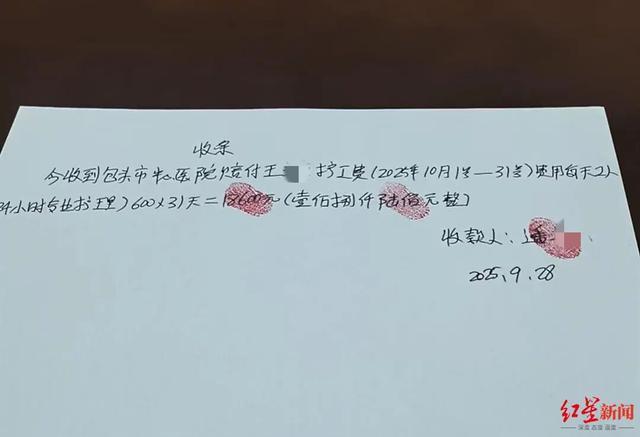 收条
今收到包头市中心医院赔付王 护工费(2025年10月1号—31号)使用每天2人
24小时专业护理)600×31天=18600元(壹佰捌仟陆佰元整)
收款人:
2025.9.28
红星新闻
深度 态度 温度